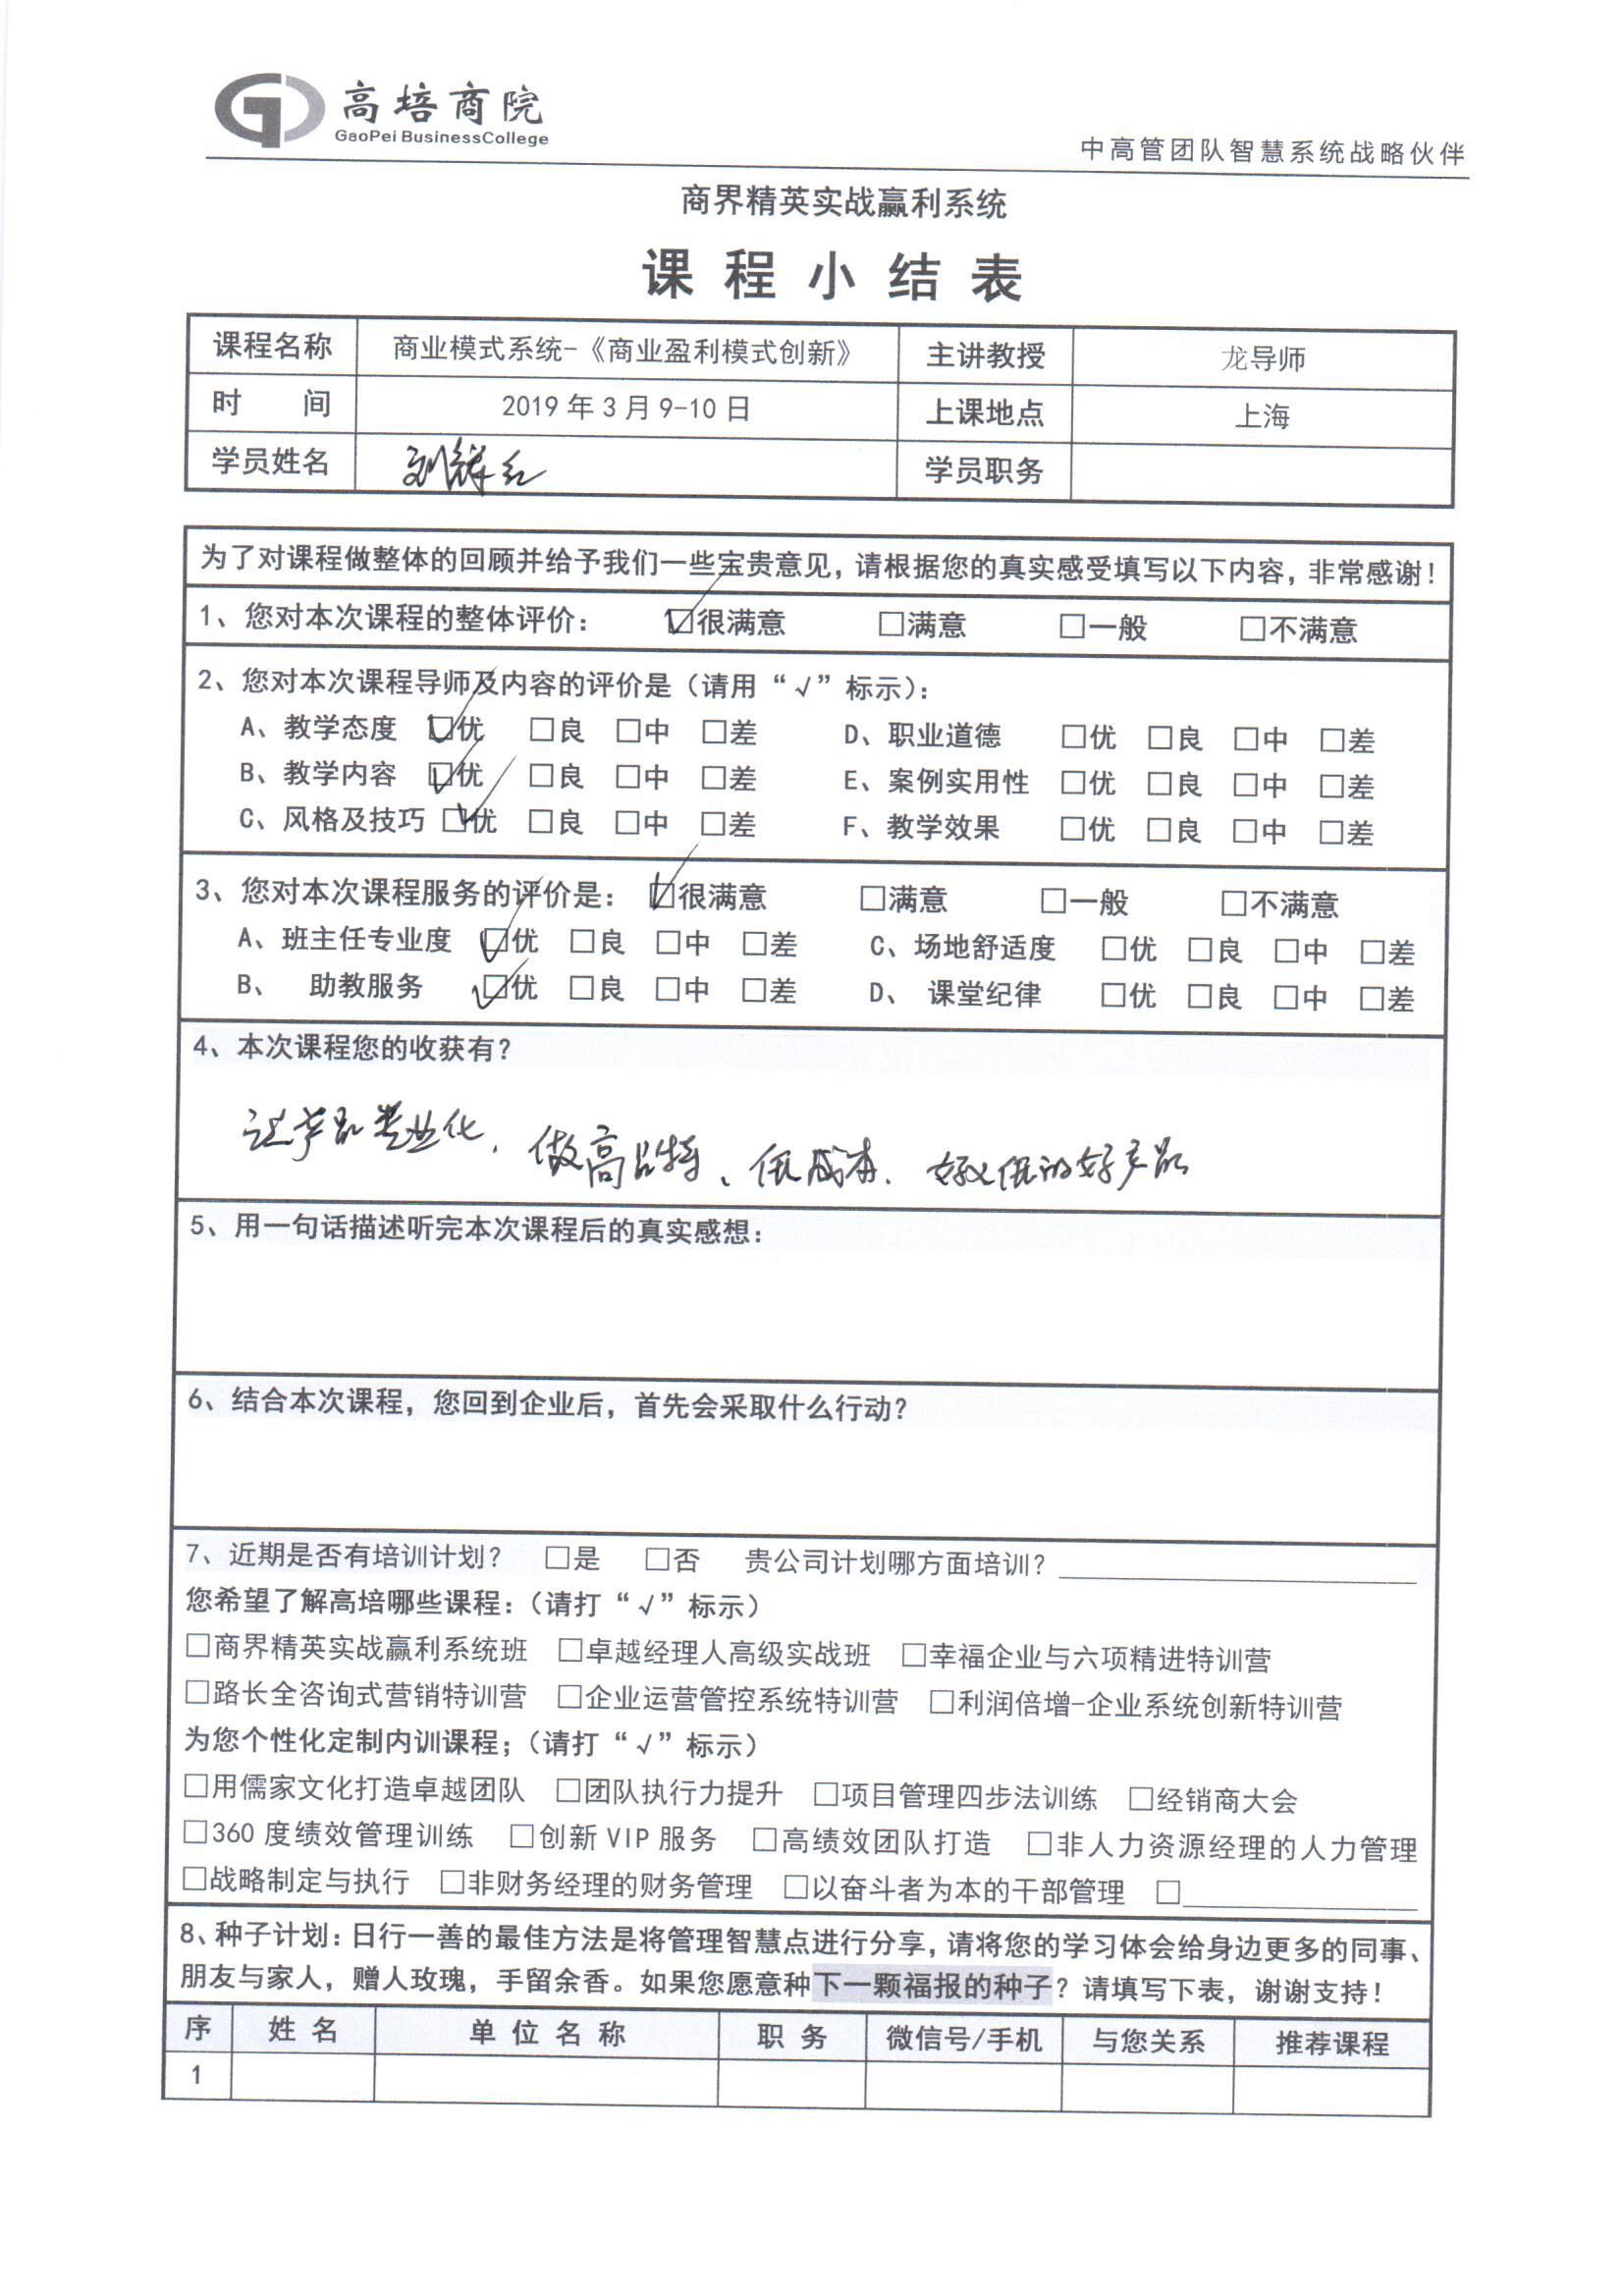 高培商院
GaoPei BusinessCollege
中高管团队智慧系统战略伙伴
商界精英实战赢利系统
课 程 小 结 表
课程名称 商业模式系统-《商业盈利模式创新》 主讲教授 龙导师
时 间 2019 年 3 月 9-10 日 上课地点 上海
学员姓名 刘 红 学员职务
为了对课程做整体的回顾并给予我们一些宝贵意见，请根据您的真实感受填写以下内容，非常感谢！
1、您对本次课程的整体评价： ☑很满意 □满意 □一般 □不满意
2、您对本次课程导师及内容的评价是（请用“√”标示）：
A、教学态度 ☑优 □良 □中 □差 D、职业道德 □优 □良 □中 □差
B、教学内容 ☑优 □良 □中 □差 E、案例实用性 □优 □良 □中 □差
C、风格及技巧 ☑优 □良 □中 □差 F、教学效果 □优 □良 □中 □差
3、您对本次课程服务的评价是： ☑很满意 □满意 □一般 □不满意
A、班主任专业度 ☑优 □良 □中 □差 C、场地舒适度 □优 □良 □中 □差
B、 助教服务 ☑优 □良 □中 □差 D、 课堂纪律 □优 □良 □中 □差
4、本次课程您的收获有？
让产品 业化、做高品 、低成本、好又低的好产品
5、用一句话描述听完本次课程后的真实感想：
6、结合本次课程，您回到企业后，首先会采取什么行动？
7、近期是否有培训计划？ □是 □否 贵公司计划哪方面培训？
您希望了解高培哪些课程：（请打“√”标示）
□商界精英实战赢利系统班 □卓越经理人高级实战班 □幸福企业与六项精进特训营
□路长全咨询式营销特训营 □企业运营管控系统特训营 □利润倍增-企业系统创新特训营
为您个性化定制内训课程；（请打“√”标示）
□用儒家文化打造卓越团队 □团队执行力提升 □项目管理四步法训练 □经销商大会
□360 度绩效管理训练 □创新 VIP 服务 □高绩效团队打造 □非人力资源经理的人力管理
□战略制定与执行 □非财务经理的财务管理 □以奋斗者为本的干部管理 □
8、种子计划：日行一善的最佳方法是将管理智慧点进行分享，请将您的学习体会给身边更多的同事、
朋友与家人，赠人玫瑰，手留余香。如果您愿意种下一颗福报的种子？请填写下表，谢谢支持！
序 姓 名 单 位 名 称 职 务 微信号/手机 与您关系 推荐课程
1